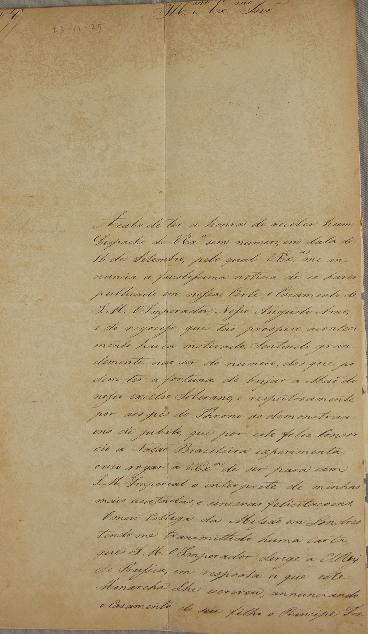 Ill.mo e Ex.mo Snr.
23-11-29
Acabo de ter a honra de receber hum
Despacho de VEx.a sem numero, em data de
16 de Setembro, pelo qual VEx.a me an
nuncia a faustissima noticia de se haver
publicado em nossa Corte o Cazamento de
S. M. O Imperador, Nosso Augusto Amo,
e do regozijo que tão prospero aconteci
mento havia motivado. Sentindo gran
demente não ser do numero, dos que po
dem ter a fortuna de beijar a Mão do
nosso excelso Soberano, e respeitosamente
por aos pés do Throno as demonstrações
de jubilo, que por este feliz Consor
cio a Nação Brasileira experimenta
ouso rogar a VEx.a de ser para com
S. M. Imperial o interprete de minhas
mais exaltadas e sinceras felicitações.
O meu Collega da Missão em Londres
tendo me transmittido huma carta
que S. M. O Imperador dirige a ElRey
de Prussia, em resposta a que este
Monarcha Lhe escreveu, annunciando
o Casamento de seu filho o Principe